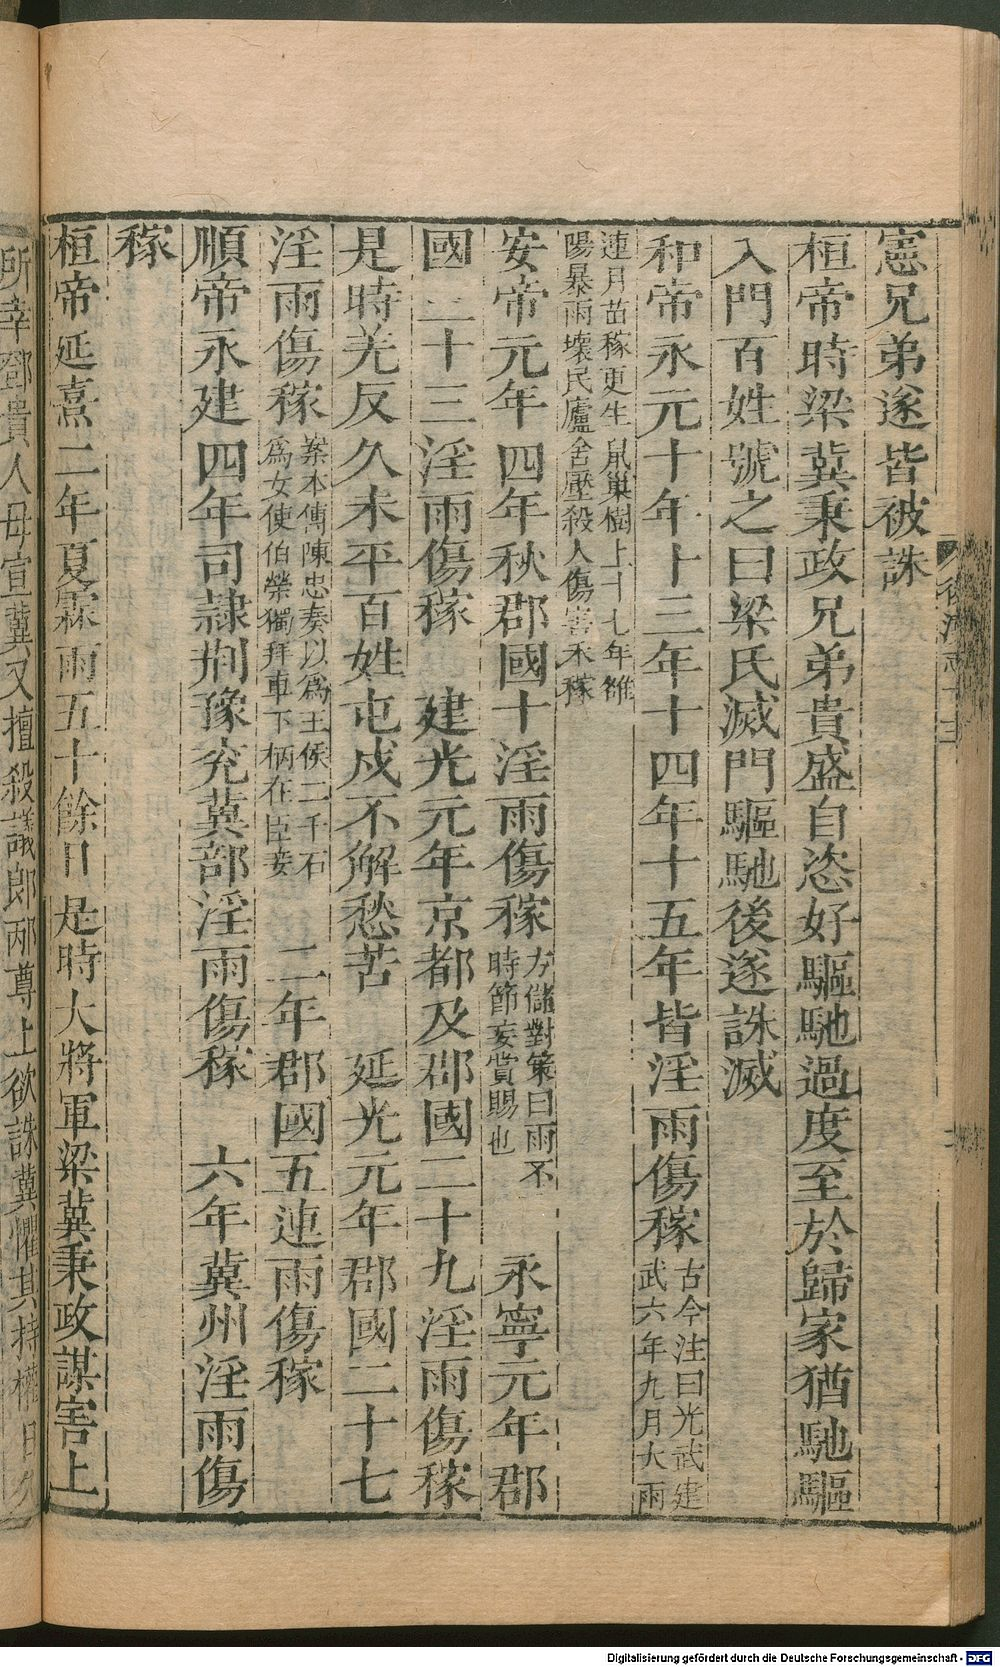 憲兄弟遂皆被誅
桓帝時梁冀秉政兄弟貴盛自恣好驅馳過度至於歸家猶馳驅
入門百姓號之曰梁氏滅門驅馳後遂誅滅
和帝永元十年十三年十四年十五年皆淫雨傷稼古今注曰光武建武六年九月大雨
連月苗稼更生鼠巢樹上十七年雒陽暴雨壞民廬舍壓殺人傷害禾稼
安帝元年四年秋郡國十淫雨傷稼方儲對策曰雨不時節妄賞賜也 永寧元年郡
國三十三淫雨傷稼 建光元年京都及郡國二十九淫雨傷稼
是時羌反久未平百姓屯戍不解愁苦 延光元年郡國二十七
淫雨傷稼案本傳陳忠奏以爲王侯二千石爲女使伯榮獨拜車下柄在臣妾 二年郡國五連雨傷稼
順帝永建四年司隷荆豫兖冀部淫雨傷稼 六年冀州淫雨傷
稼
桓帝延熹二年夏霖雨五十餘日是時大將軍梁冀秉政謀害上
所幸鄧貴人母宣冀又擅殺議郎邴尊上欲誅冀懼其持權日久
Digitalisierung gefördert durch die Deutsche Forschungsgemeinschaft - DFG